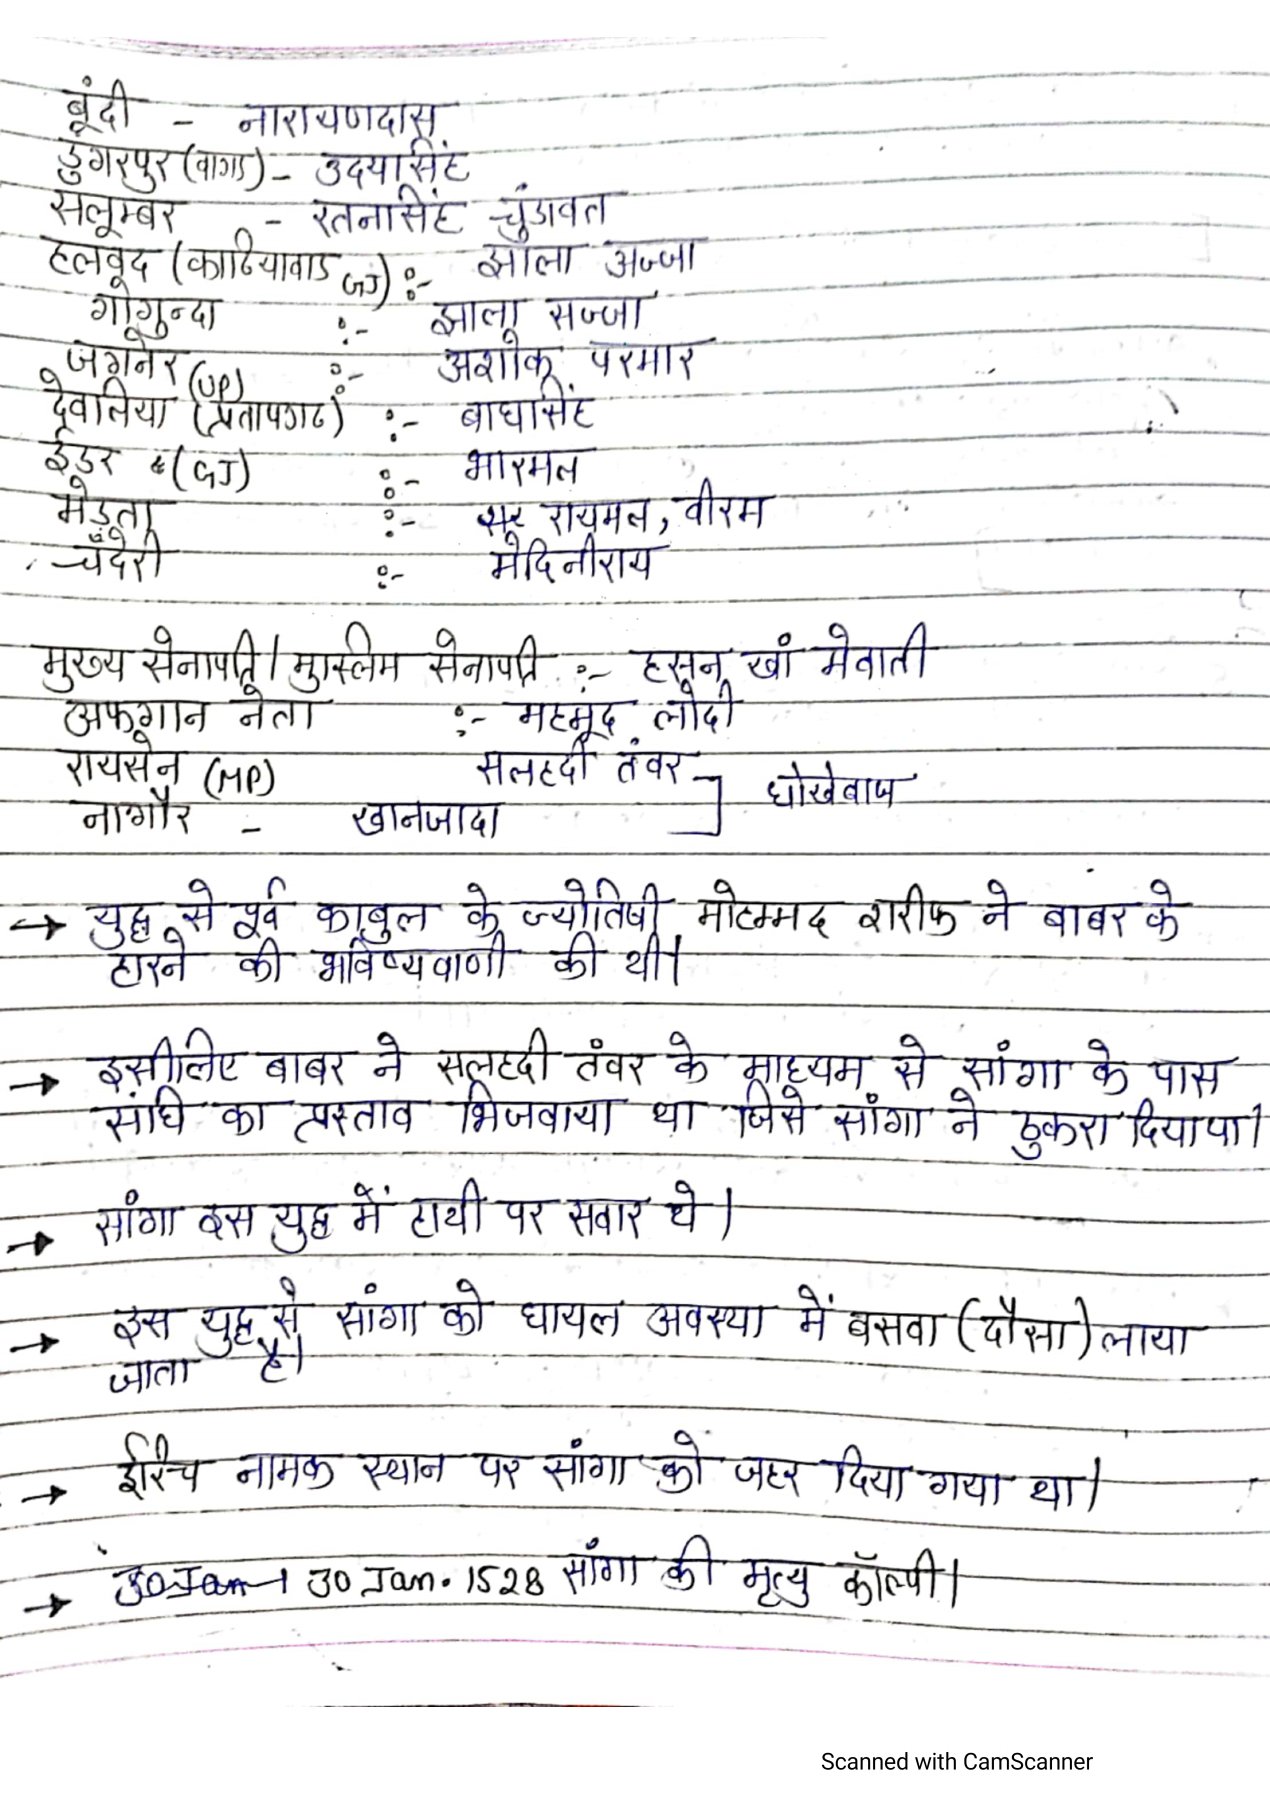 बूंदी - नारायणदास
डुंगरपुर (वागड) - उदयसिंह
सलूम्बर - रतनसिंह चुंडावत
हलवूद (काठियावाड GJ) :- झाला अज्जा
गोगुन्दा :- झाला सज्जा
जगनेर (UP) :- अशोक परमार
देवलिया (प्रतापगढ) :- बाघसिंह
ईडर (GJ) :- भारमल
मेड़ता :- रायमल, वीरम
चंदेरी :- मेदिनीराय
मुख्य सेनापति / मुस्लिम सेनापति :- हसन खां मेवाती
अफगान नेता :- महमूद लोदी
रायसेन (MP) सलहदी तंवर
धोखेबाज
नागौर - खानजादा
→ युद्ध से पूर्व काबुल के ज्योतिषी मोहम्मद शरीफ ने बाबर के
हारने की भविष्यवाणी की थी।
→ इसीलिए बाबर ने सलहदी तंवर के माध्यम से सांगा के पास
संधि का प्रस्ताव भिजवाया था जिसे सांगा ने ठुकरा दिया था।
→ सांगा इस युद्ध में हाथी पर सवार थे।
→ इस युद्ध से सांगा को घायल अवस्था में बसवा (दौसा) लाया
जाता है।
→ ईरिच नामक स्थान पर सांगा को जहर दिया गया था।
→ 30 Jan 1 30 Jan. 1528 सांगा की मृत्यु कॉल्पी।
Scanned with CamScanner